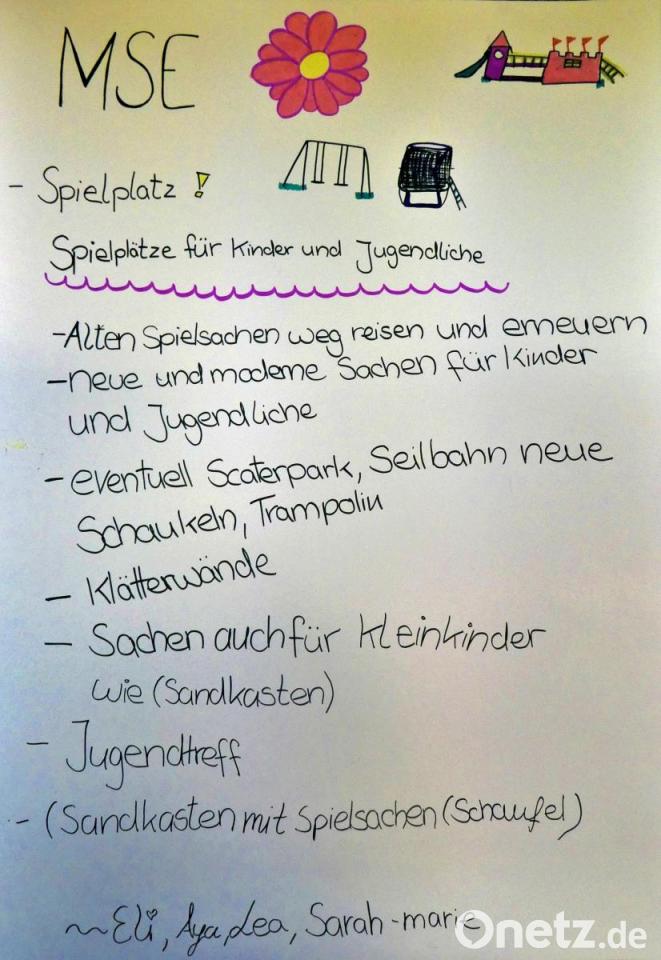 MSE
- Spielplatz !
Spielplätze für Kinder und Jugendliche
-Alten Spielsachen weg reisen und erneuern
-neue und moderne Sachen für Kinder
und Jugendliche
- eventuell Scaterpark, Seilbahn neue
Schaukeln, Trampolin
- Klätterwände
- Sachen auch für Kleinkinder
wie (Sandkasten)
- Jugendtreff
- (Sandkasten mit Spielsachen (Schaufel)
~Eli, Aya, Lea, Sarah-marie
Onetz.de